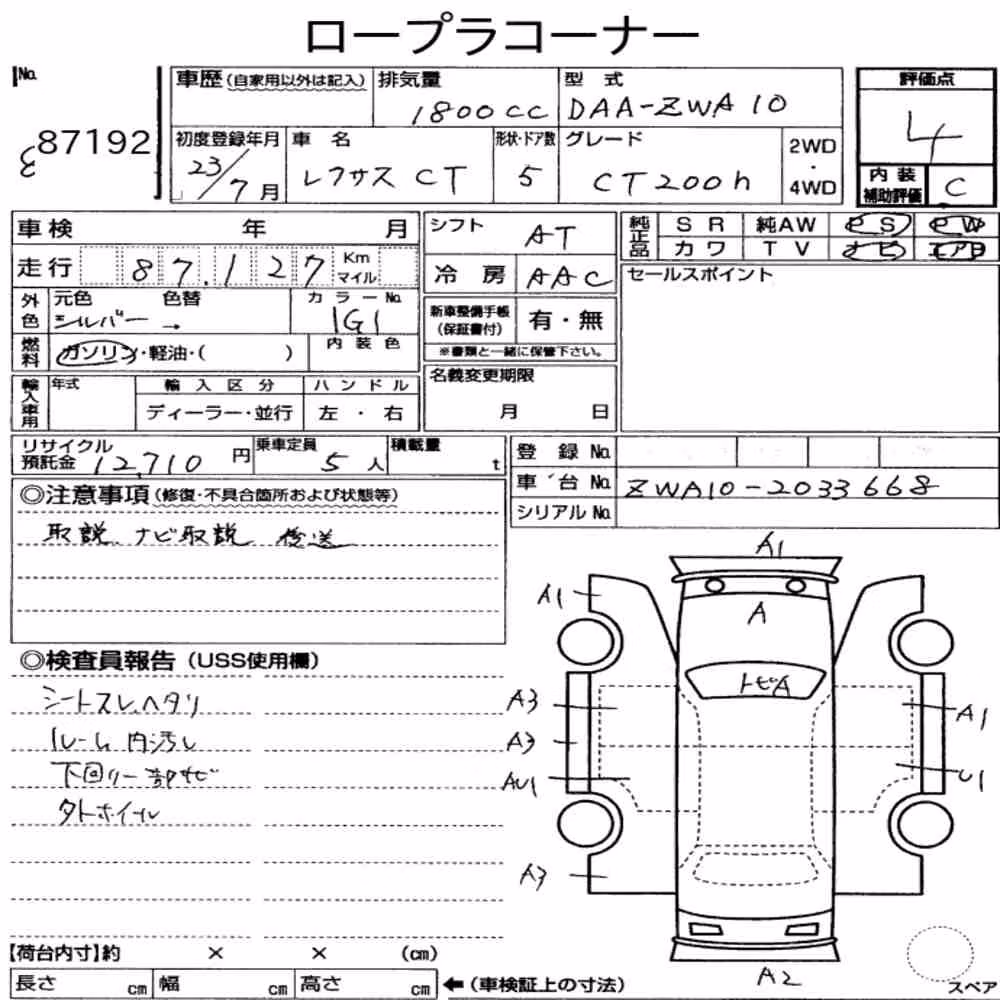 ロープラコーナー
No.
87192
車歴 (自家用以外は記入)
排気量
1800cc
型式
DAA-ZWA10
評価点
4
初度登録年月
23/7月
車名
レクサス CT
形状・ドア数
5
グレード
CT200h
2WD
・
4WD
内装
補助評価
C
車検 年 月
シフト
AT
純正品
SR 純AW PS PW
カワ TV ナビ エアB
走行 87,127 Km マイル
冷房
AAC
セールスポイント
外色
元色 色替
シルバー →
カラーNo.
1G1
新車整備手帳
(保証書付)
有・無
※書類と一緒に保管下さい。
燃料
ガソリン・軽油・( )
内装色
名義変更期限
月 日
輸入車用
年式
輸入区分
ハンドル
ディーラー・並行
左・右
リサイクル
預託金 12,710 円
乗車定員
5人
積載量
t
登録No.
車台No. ZWA10-2033668
シリアルNo.
◎注意事項 (修復・不具合箇所および状態等)
取説、ナビ取説 後送
◎検査員報告 (USS使用欄)
シートスレ、ヘタリ
ルーム内汚レ
下回り一部サビ
タトホイル
A1
A1
A
トビA
A3
A1
A3
AU1
U1
A3
A2
スペア
【荷台内寸】約 × × (cm)
長さ cm 幅 cm 高さ cm ←(車検証上の寸法)